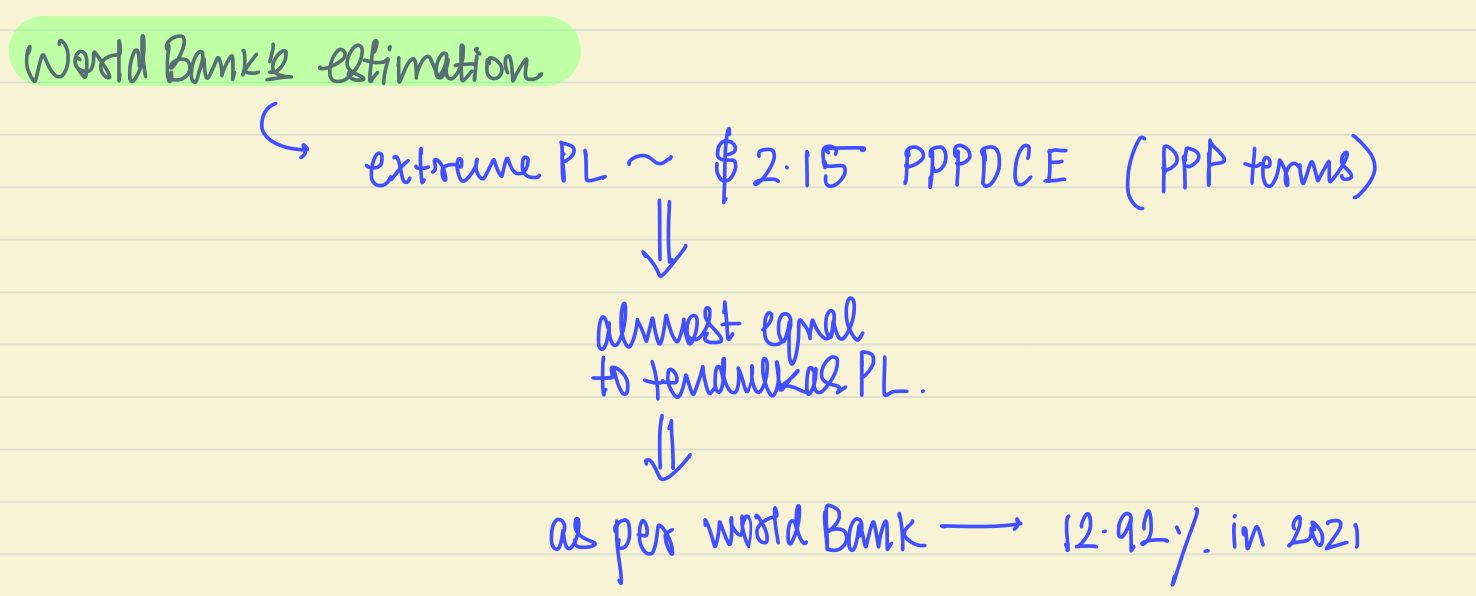 World Bank's estimation
extreme PL ~ $2.15 PPPDCE (PPP terms)
almost equal
to tendulkar PL.
as per world Bank → 12.92% in 2021